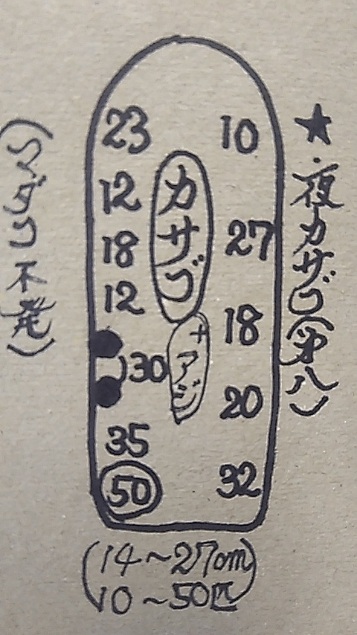 ★・夜カサゴ(第八)
カサゴ
+アジ
23
12
18
12
130
35
50
10
27
18
20
32
(マダコ不発)
(14〜27cm)
10〜50匹